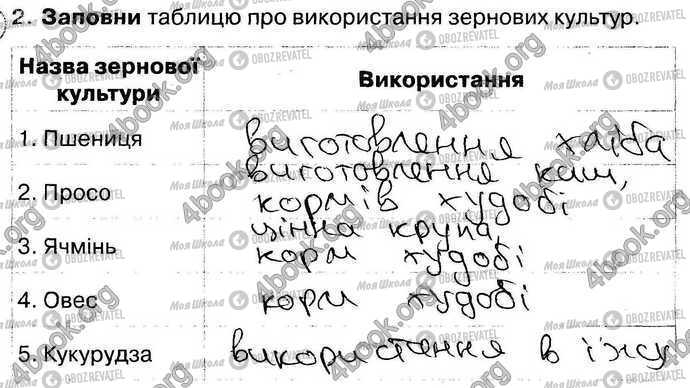 2. Заповни таблицю про використання зернових культур.
Назва зернової культури
Використання
1. Пшениця
виготовлення хліба
2. Просо
виготовлення каш,
кормів худобі
3. Ячмінь
цінна крупа,
корм худобі
4. Овес
корм худобі
5. Кукурудза
використання в їжу
4book.org
Моя Школа
OBOZREVATEL